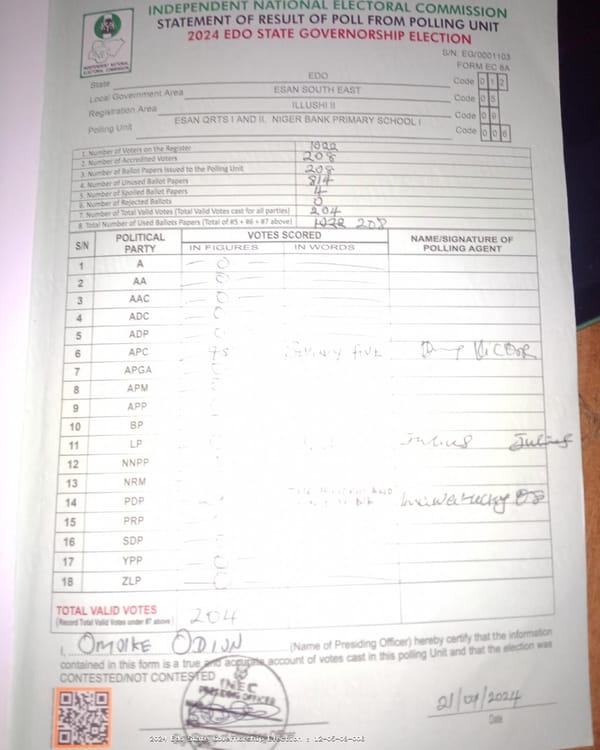 INDEPENDENT NATIONAL ELECTORAL COMMISSION
STATEMENT OF RESULT OF POLL FROM POLLING UNIT
2024 EDO STATE GOVERNORSHIP ELECTION
INDEPENDENT NATIONAL ELECTORAL COMMISSION
S/N: EG/0001103
FORM EC 8A
State EDO Code 0 1 2
Local Government Area ESAN SOUTH EAST Code 0 5
Registration Area ILLUSHI II Code 0 9
Polling Unit ESAN QRTS I AND II. NIGER BANK PRIMARY SCHOOL I Code 0 0 6
1. Number of Voters on the Register 1022
2. Number of Accredited Voters 208
3. Number of Ballot Papers Issued to the Polling Unit 208
4. Number of Unused Ballot Papers 814
5. Number of Spoiled Ballot Papers 4
6. Number of Rejected Ballots 0
7. Number of Total Valid Votes (Total Valid Votes cast for all parties) 204
8. Total Number of Used Ballots Papers (Total of #5 + #6 + #7 above) 1022 208
S/N POLITICAL PARTY VOTES SCORED NAME/SIGNATURE OF POLLING AGENT
IN FIGURES IN WORDS
1 A 0
2 AA 0
3 AAC 0
4 ADC 0
5 ADP
6 APC 75 SEVENTY FIVE VICTOR
7 APGA
8 APM
9 APP
10 BP
11 LP Julius Julius
12 NNPP
13 NRM
14 PDP AND
15 PRP
16 SDP
17 YPP 0
18 ZLP 0
TOTAL VALID VOTES 204
(Record Total Valid Votes under #7 above)
I, OMOIKE ODION (Name of Presiding Officer) hereby certify that the information
contained in this form is a true and accurate account of votes cast in this polling Unit and that the election was
CONTESTED/NOT CONTESTED
INEC
PRESIDING OFFICER
21/09/2024
Date
2024 Edo State Governorship Election : 12-05-09-006